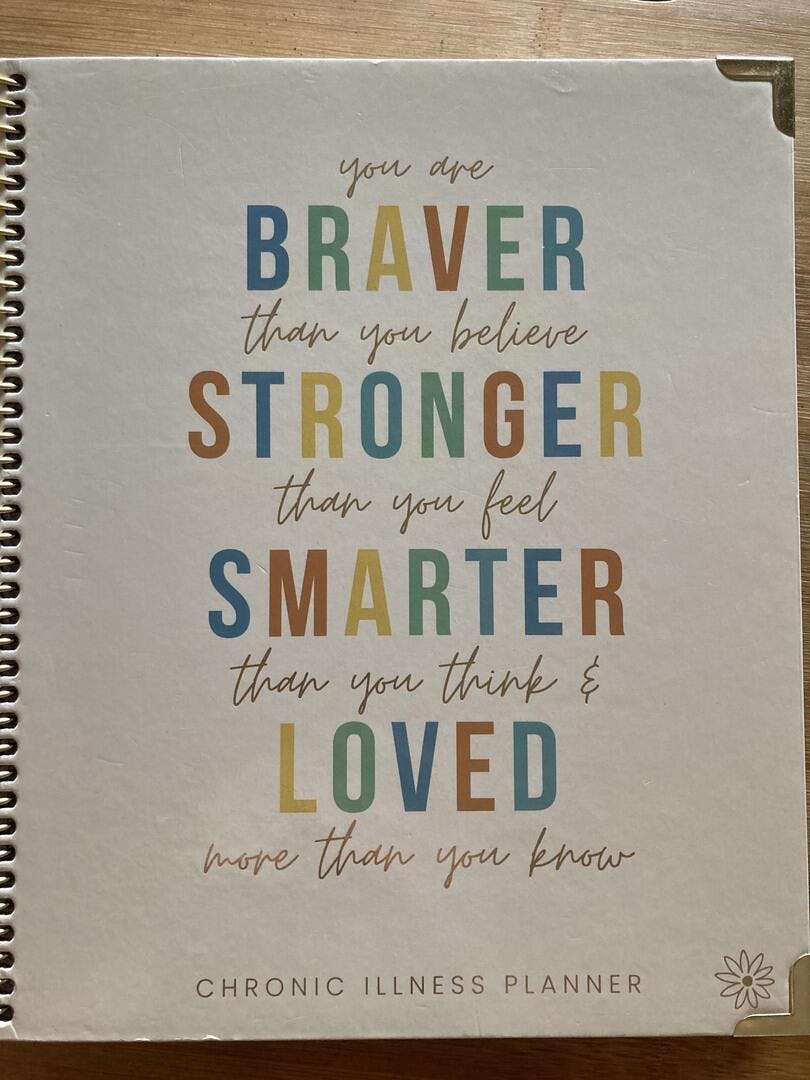 you are
BRAVER
than you believe
STRONGER
than you feel
SMARTER
than you think &
LOVED
more than you know
CHRONIC ILLNESS PLANNER